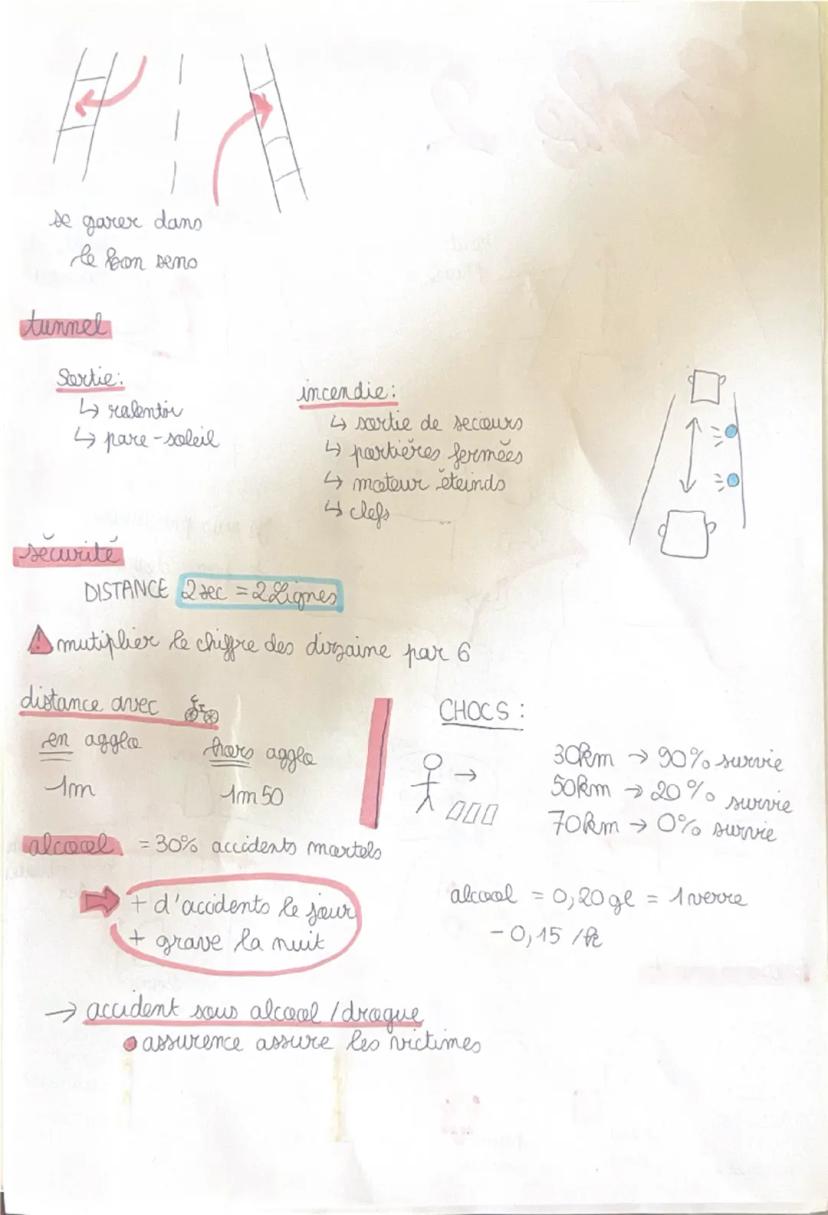 se garer dans
le bon sens
tunnel
Sortie:
↳ ralentir
↳ pare-soleil
incendie:
↳ sortie de secours
↳ portières fermées
↳ moteur éteinds
↳ clefs
sécurité
DISTANCE 2sec = 2 Lignes
mutiplier le chiffre des dizaine par 6
distance avec
en agglo
1m
hors agglo
1m50
CHOCS:
30km → 90% survie
50km → 20% survie
70km → 0% survie
alcool = 30% accidents mortels
+ d'accidents le jour
+ grave la nuit
alcool = 0,20gl = 1 verre
- 0,15 /h
→ accident sous alcool / drogue
assurence assure les victimes